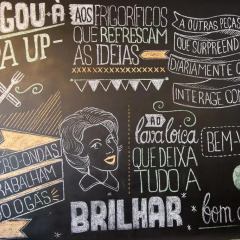 GOU-À
A UP-
AOS FRIGORÍFICOS
QUE REFRESCAM
AS IDEIAS
A OUTRAS PEÇAS
QUE SURPREENDEM
DIARIAMENTE
INTERAGE COM
RO-ONDAS
TRABALHAM
DO O GÁS
AO
LAVA LOIÇA
QUE DEIXA
TUDO A
BRILHAR
BEM-V
bom d